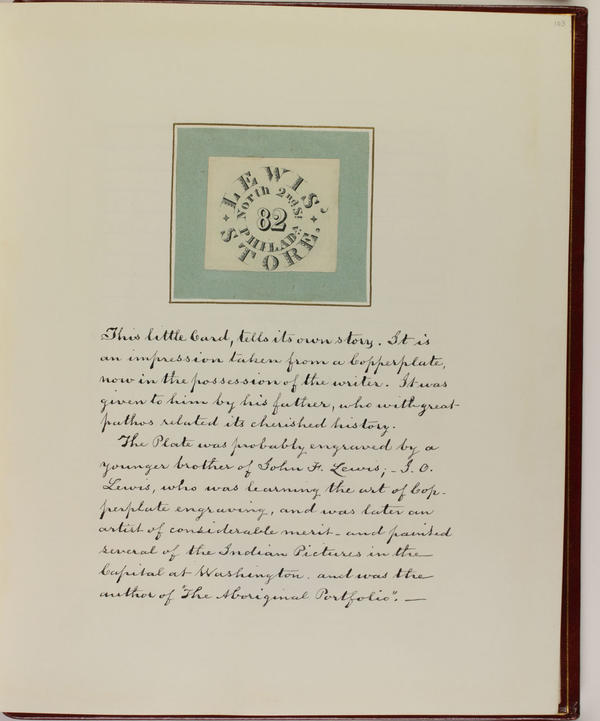 103
LEWIS'
North 2nd. St
82
PHILADA.
STORE.
This little Card, tells its own story. It is
an impression taken from a Copperplate,
now in the possession of the writer. It was
given to him by his father, who with great
pathos related its cherished history.
The Plate was probably engraved by a
younger brother of John F. Lewis; - J. O.
Lewis, who was learning the art of Cop-
perplate engraving, and was later an
artist of considerable merit - and painted
several of the Indian Pictures in the
Capital at Washington. and was the
author of "The Aboriginal Portfolio". —